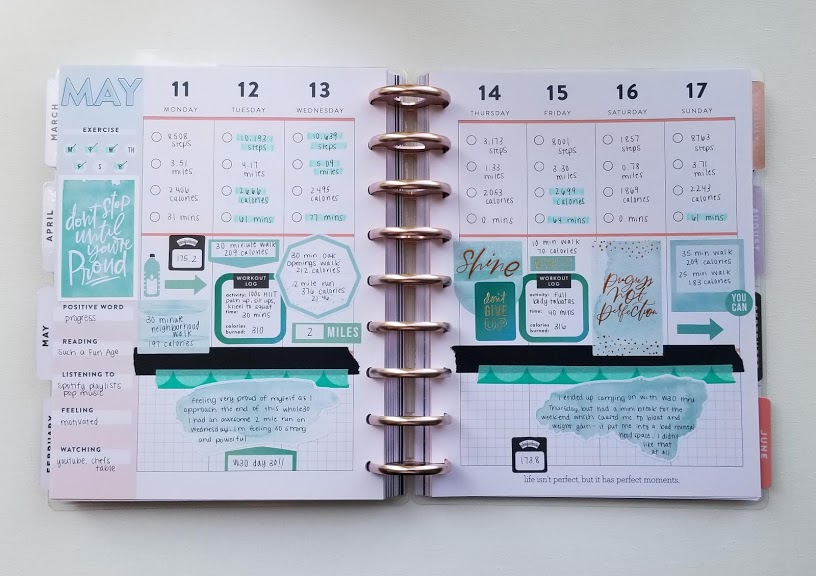 MARCH
APRIL
MAY
FEBRUARY
JUNE
MAY
EXERCISE
TH
S
don't stop
until
you're
Proud
POSITIVE WORD
progress
READING
Such a Fun Age
LISTENING TO
spotify playlists
pop music
FEELING
motivated
WATCHING
youtube, chefs
table
11
MONDAY
8508
steps
3.51
miles
2406
calories
31 mins
175.2
30 minute
neighborhood
walk
197 calories
12
TUESDAY
10,192
steps
4.17
miles
2666
calories
61 mins
30 minute walk
209 calories
WORKOUT
LOG
activity: 100s HIIT
palm up, sit ups,
kneel to squat
time:
30 mins
calories
burned: 310
13
WEDNESDAY
10,639
steps
5.04
miles
2495
calories
77 mins
30 min
openings walk
212 calories
2 mile run
376 calories
2 MILES
Feeling very proud of myself as I
approach the end of this whole30
I had an awesome 2 mile run on
Wednesday. I'm feeling so strong
and powerful
W30 day 30!!
14
THURSDAY
3,173
steps
1.33
miles
2063
calories
0 mins
Shine
don't
GIVE
up
15
FRIDAY
8001
steps
3.30
miles
2699
calories
64 mins
10 min walk
70 calories
WORKOUT
LOG
activity: full
body tabatas
time: 40 mins
calories
burned: 316
16
SATURDAY
1857
steps
0.78
miles
1869
calories
0 mins
progress
not
perfection
17
SUNDAY
8763
steps
3.71
miles
2243
calories
61 mins
35 min walk
209 calories
25 min walk
183 calories
YOU
CAN
I ended up carrying on with W30 thru
Thursday but had a mini break for the
weekend which caused me to bloat and
weight gain - it put me into a bad mental
head space. I didn't
like that
at all
173.8
life isn't perfect, but it has perfect moments.